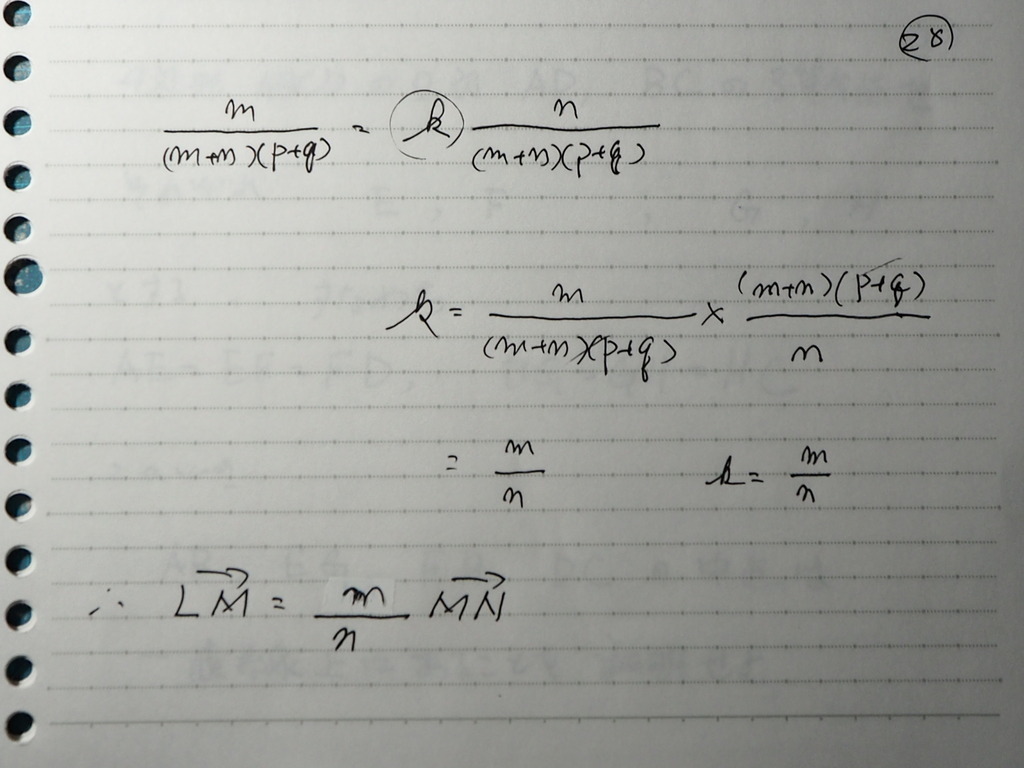 28
m/((m+n)(p+q)) = k n/((m+n)(p+q))
k = m/((m+n)(p+q)) × ((m+n)(p+q))/n
= m/n k = m/n
∴ \overrightarrow{LM} = m/n \overrightarrow{MN}